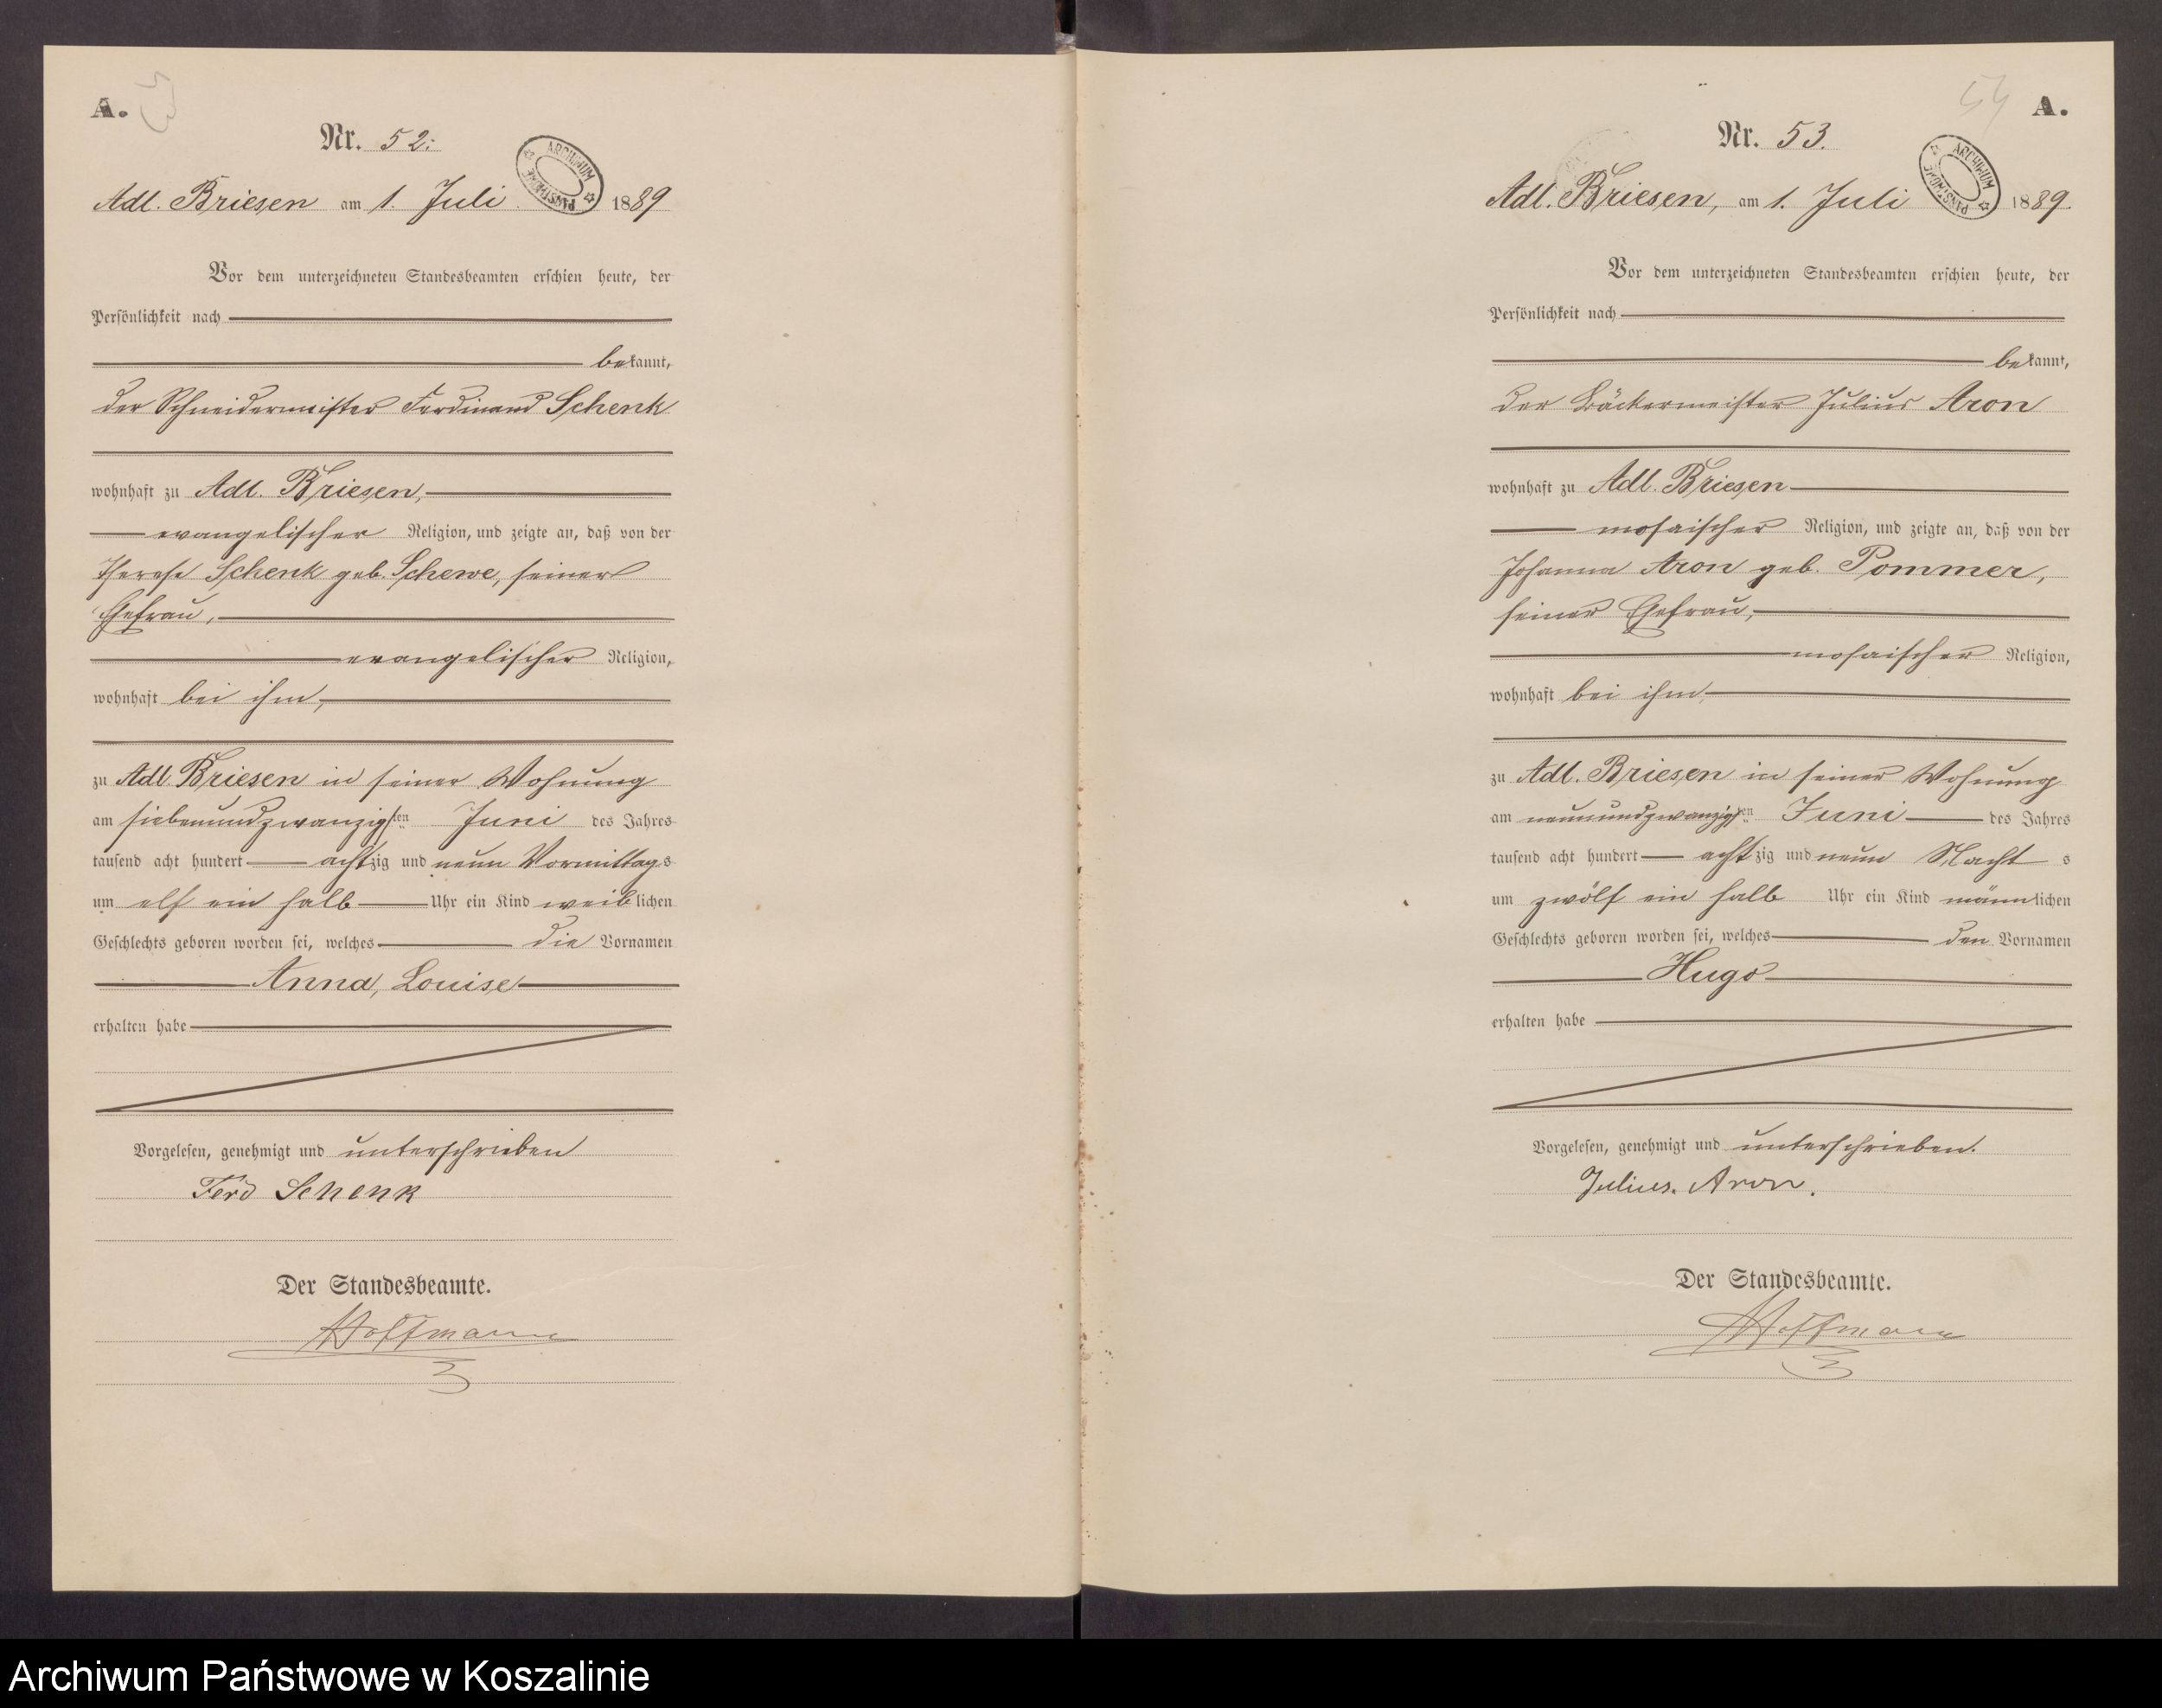 A.
Nr. 52.
ARCHIWUM PAŃSTWOWE
Adl. Briesen am 1. Juli 1889
Vor dem unterzeichneten Standesbeamten erschien heute, der
Persönlichkeit nach
bekannt,
der Schneidermeister Ferdinand Schenk
wohnhaft zu Adl. Briesen,
evangelischer Religion, und zeigte an, daß von der
Therese Schenk geb. Schewe, seiner
Ehefrau,
evangelischer Religion,
wohnhaft bei ihm,
zu Adl. Briesen in seiner Wohnung
am siebenundzwanzigsten Juni des Jahres
tausend acht hundert achtzig und neun Vormittags
um elf ein halb Uhr ein Kind weiblichen
Geschlechts geboren worden sei, welches die Vornamen
Anna, Louise
erhalten habe
Vorgelesen, genehmigt und unterschrieben
Ferd Schenk
Der Standesbeamte.
Hoffmann
54 A.
Nr. 53.
ARCHIWUM PAŃSTWOWE
Adl. Briesen, am 1. Juli 1889.
Vor dem unterzeichneten Standesbeamten erschien heute, der
Persönlichkeit nach
bekannt,
der Bäckermeister Julius Aron
wohnhaft zu Adl. Briesen
mosaischer Religion, und zeigte an, daß von der
Johanna Aron geb. Pommer,
seiner Ehefrau,
mosaischer Religion,
wohnhaft bei ihm,
zu Adl. Briesen in seiner Wohnung
am neunundzwanzigsten Juni des Jahres
tausend acht hundert achtzig und neun Nachts
um zwölf ein halb Uhr ein Kind männlichen
Geschlechts geboren worden sei, welches den Vornamen
Hugo
erhalten habe
Vorgelesen, genehmigt und unterschrieben.
Julius. Aron.
Der Standesbeamte.
Hoffmann
Archiwum Państwowe w Koszalinie